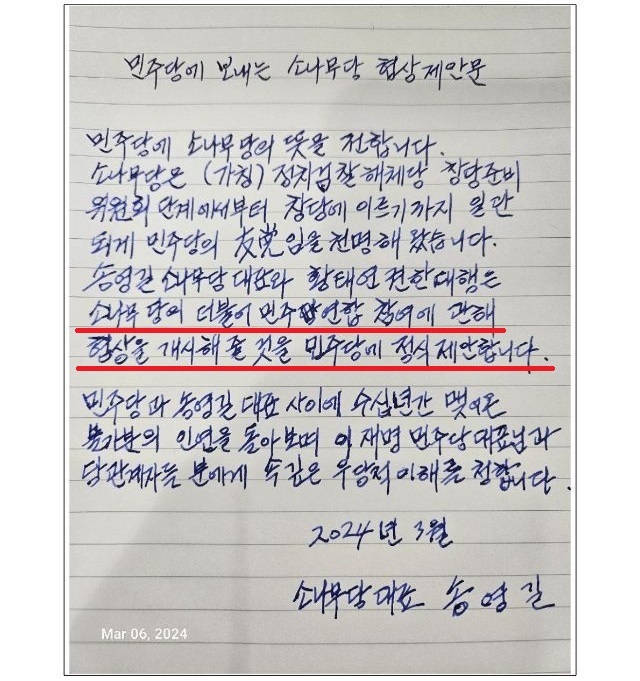 민주당에 보내는 소나무당 협상제안문
민주당에 소나무당의 뜻을 전합니다.
소나무당은 (가칭) 정치검찰해체당 창당준비
위원회 단계에서부터 창당에 이르기까지 일관
되게 민주당의 友党임을 천명해 왔습니다.
송영길 소나무당 대표와 황태연 권한대행은
소나무당의 더불어민주연합 참여에 관해
협상을 개시해 줄 것을 민주당에 정식 제안합니다.
민주당과 송영길 대표 사이에 수십년간 맺어온
불가분의 인연을 돌아보며 이재명 민주당대표님과
당관계자들 분에게 속깊은 우당적 이해를 청합니다.
2024년 3월
소나무당대표 송영길
Mar 06, 2024